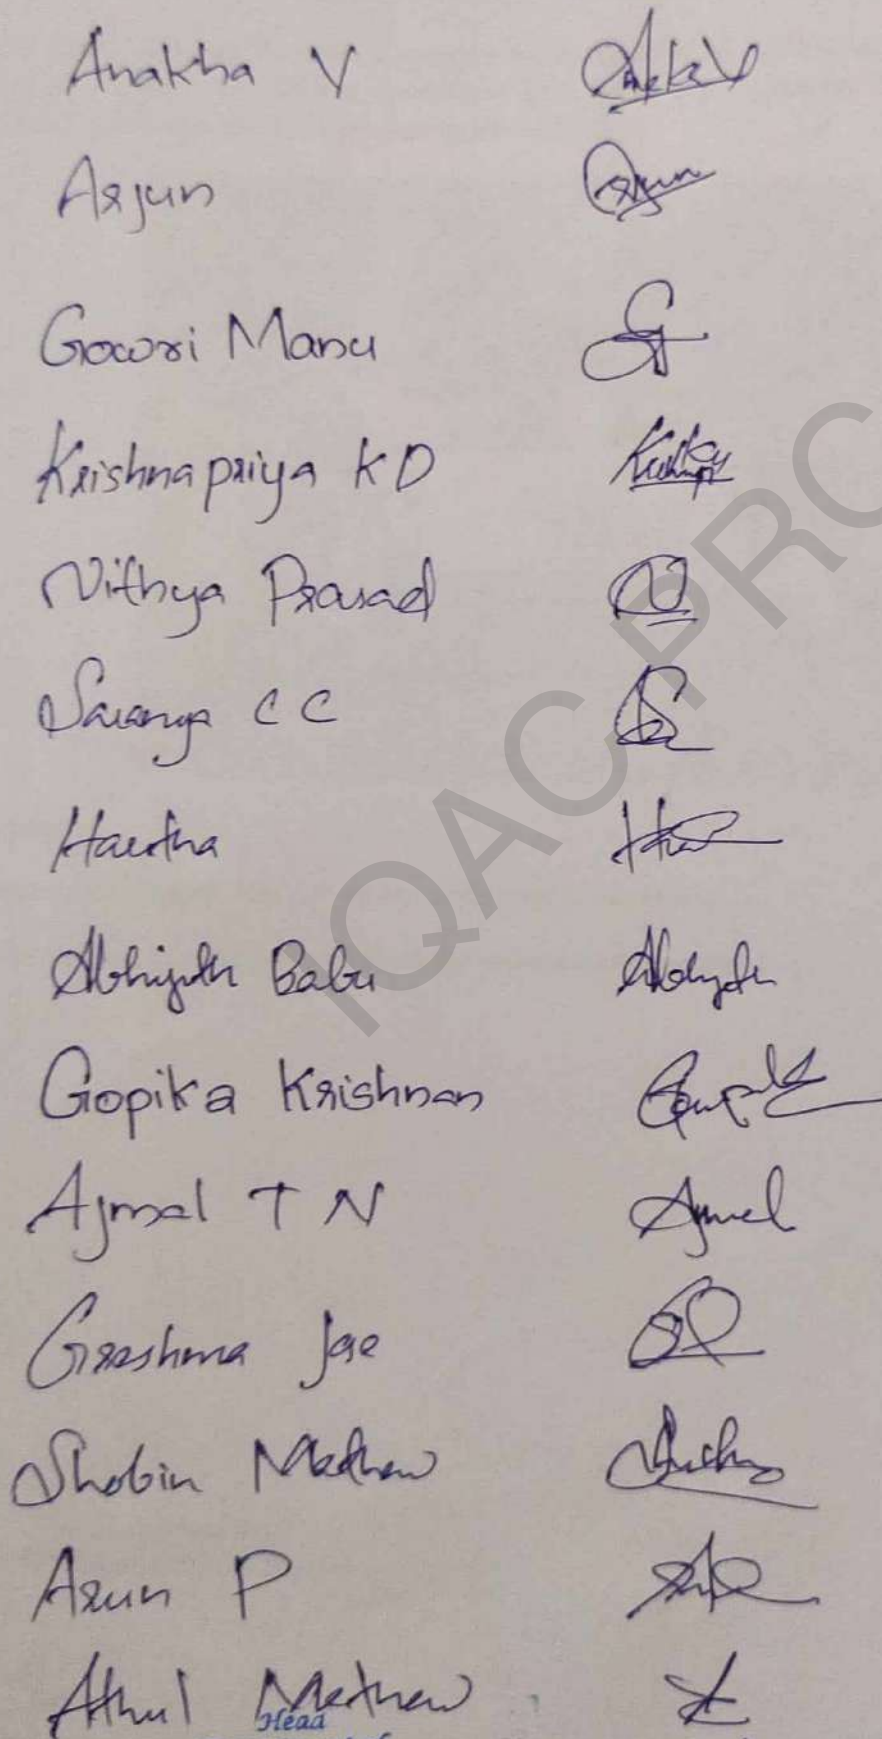 Anakha V
Arjun Arjun
Gowri Manu G
Krishnapriya KD
Nithya Prasad N
Saranya C C
Haritha
Abhijith Babu Abhijith
Gopika Krishnan
Ajmal T N Ajmal
Greshma Joe
Shobin Mathew
Arun P
Athul Mathew
Head
IQAC PRO